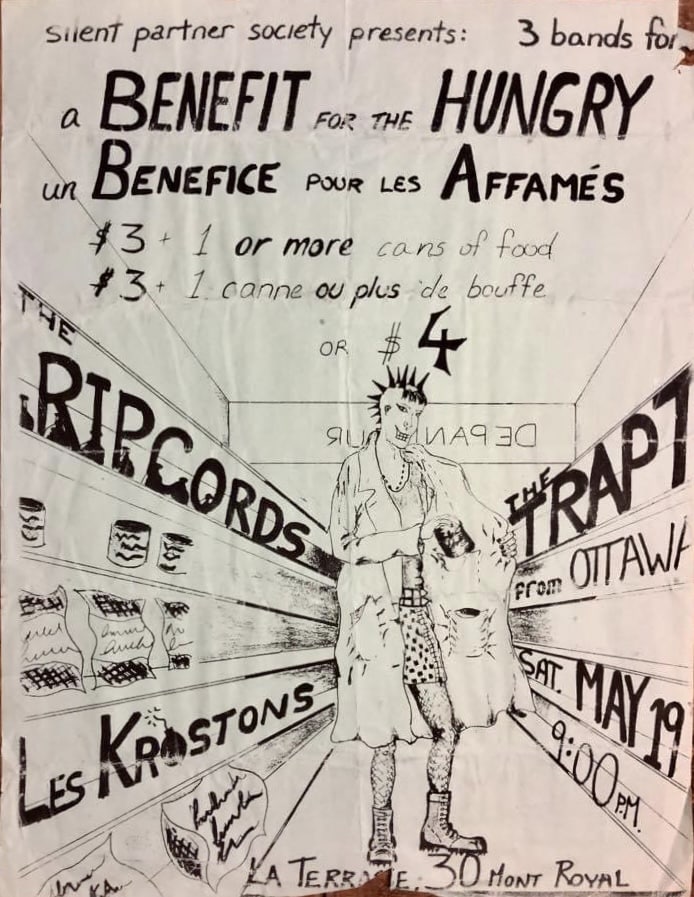 Silent partner society presents: 3 bands for
a BENEFIT FOR THE HUNGRY
un BENEFICE POUR LES AFFAMÉS
$3 + 1 or more cans of food
$3 + 1 canne ou plus de bouffe
OR $4
DEPANNEUR
THE
RIPCORDS
LES KROSTONS
THE
TRAPT
from OTTAWA
SAT. MAY 19
9:00 P.M.
LA TERRASSE, 30 MONT ROYAL